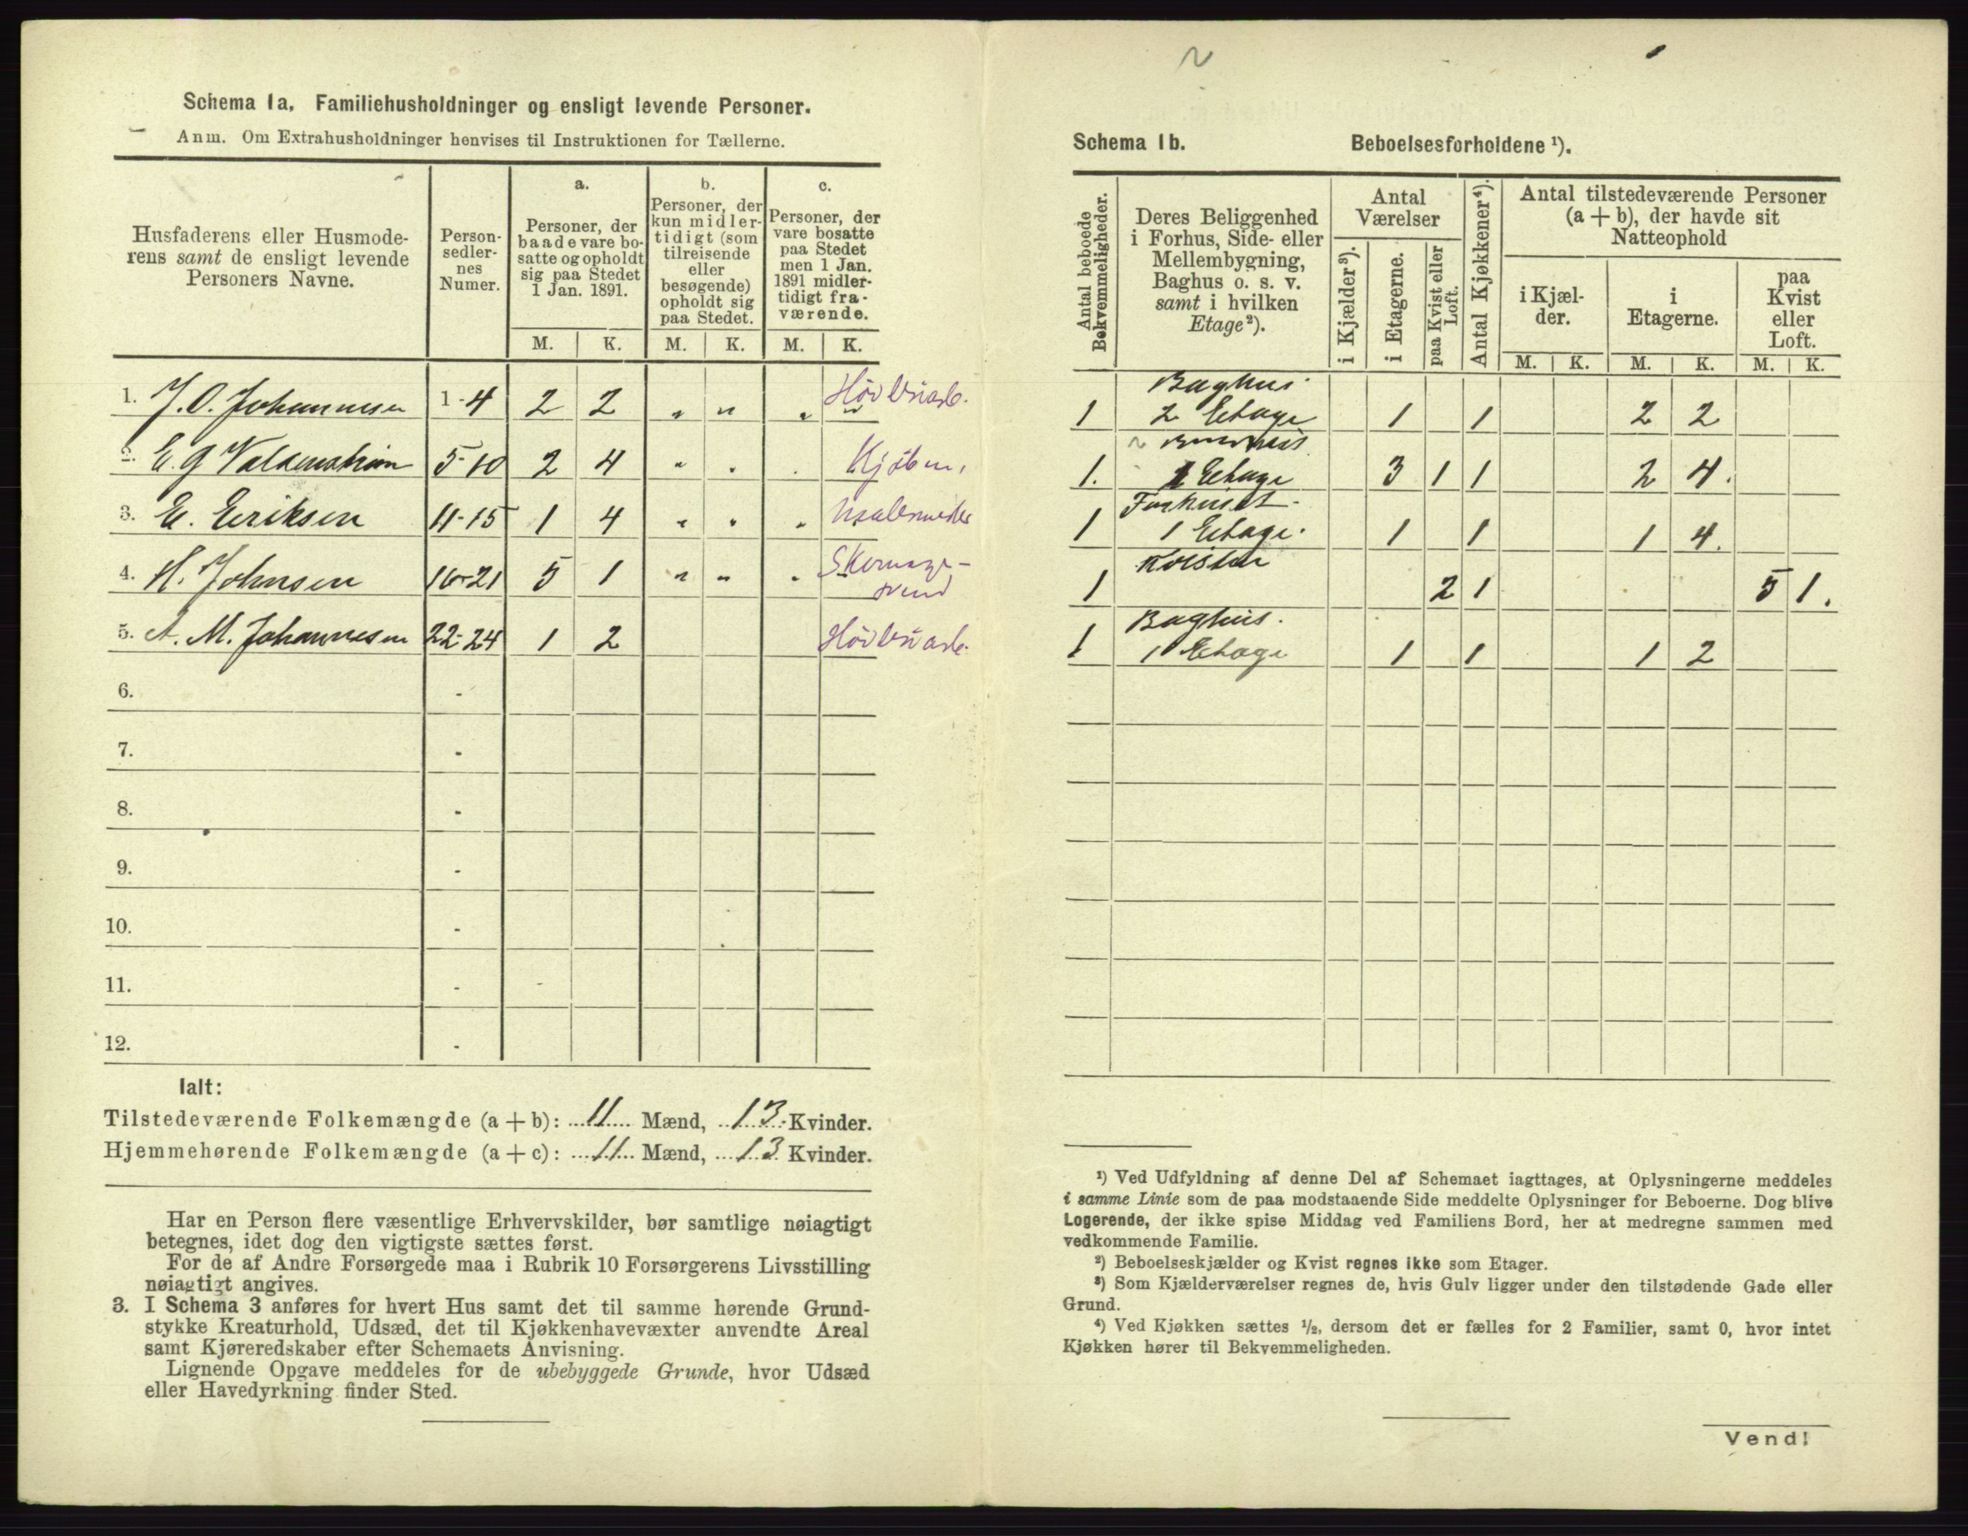 Schema 1a. Familiehusholdninger og ensligt levende Personer.
Anm. Om Extrahusholdninger henvises til Instruktionen for Tællerne.
Husfaderens eller Husmode-
rens samt de ensligt levende
Personers Navne.
Person-
sedler-
nes
Numer.
a.
Personer, der
baade vare bo-
satte og opholdt
sig paa Stedet
1 Jan. 1891.
b.
Personer, der
kun midler-
tidigt (som
tilreisende
eller
besøgende)
opholdt sig
paa Stedet.
c.
Personer, der
vare bosatte
paa Stedet
men 1 Jan.
1891 midler-
tidigt fra-
værende.
M. K. M. K. M. K.
1. J. O. Johannesen 1-4 2 2 „ „ „ „ Høvleriarb.
2. E. G 5-10 2 4 „ . . Kjøbm.
3. E. Eriksen 11-15 1 4 „ . .
4. H. Johnsen 16-21 5 1 „ „ „
5. A. M. Johannesen 22-24 1 2 Høvleriarb.
6. -
7. -
8. -
9. -
10. -
11. -
12. -
Ialt:
Tilstedeværende Folkemængde (a + b): 11 Mænd, 13 Kvinder.
Hjemmehørende Folkemængde (a + c): 11 Mænd, 13 Kvinder.
Har en Person flere væsentlige Erhvervskilder, bør samtlige nøiagtigt
betegnes, idet dog den vigtigste sættes først.
For de af Andre Forsørgede maa i Rubrik 10 Forsørgerens Livsstilling
nøiagtigt angives.
3. I Schema 3 anføres for hvert Hus samt det til samme hørende Grund-
stykke Kreaturhold, Udsæd, det til Kjøkkenhavevæxter anvendte Areal
samt Kjøreredskaber efter Schemaets Anvisning.
Lignende Opgave meddeles for de ubebyggede Grunde, hvor Udsæd
eller Havedyrkning finder Sted.
Schema 1b. Beboelsesforholdene ¹).
Antal beboede
Bekvemmeligheder.
Deres Beliggenhed
i Forhus, Side- eller
Mellembygning,
Baghus o. s. v.
samt i hvilken
Etage²).
Antal
Værelser
i Kjælder³).
i Etagerne.
paa Kvist eller
Loft.
Antal Kjøkkener⁴).
Antal tilstedeværende Personer
(a + b), der havde sit
Natteophold
i Kjæl-
der.
i
Etagerne.
paa
Kvist
eller
Loft.
M. K. M. K. M. K.
Baghus
1 2 Etage 1 1 2 2
1. 1 Etage 3 1 1 2 4.
Forhuset
1 1 Etage. 1 1 1 4.
Kvisten
1 2 1 5 1.
Baghus.
1 1 Etage 1 1 1 2
¹) Ved Udfyldning af denne Del af Schemaet iagttages, at Oplysningerne meddeles
i samme Linie som de paa modstaaende Side meddelte Oplysninger for Beboerne. Dog blive
Logerende, der ikke spise Middag ved Familiens Bord, her at medregne sammen med
vedkommende Familie.
²) Beboelseskjælder og Kvist regnes ikke som Etager.
³) Som Kjælderværelser regnes de, hvis Gulv ligger under den tilstødende Gade eller
Grund.
⁴) Ved Kjøkken sættes ¹/₂, dersom det er fælles for 2 Familier, samt 0, hvor intet
Kjøkken hører til Bekvemmeligheden.
Vend!